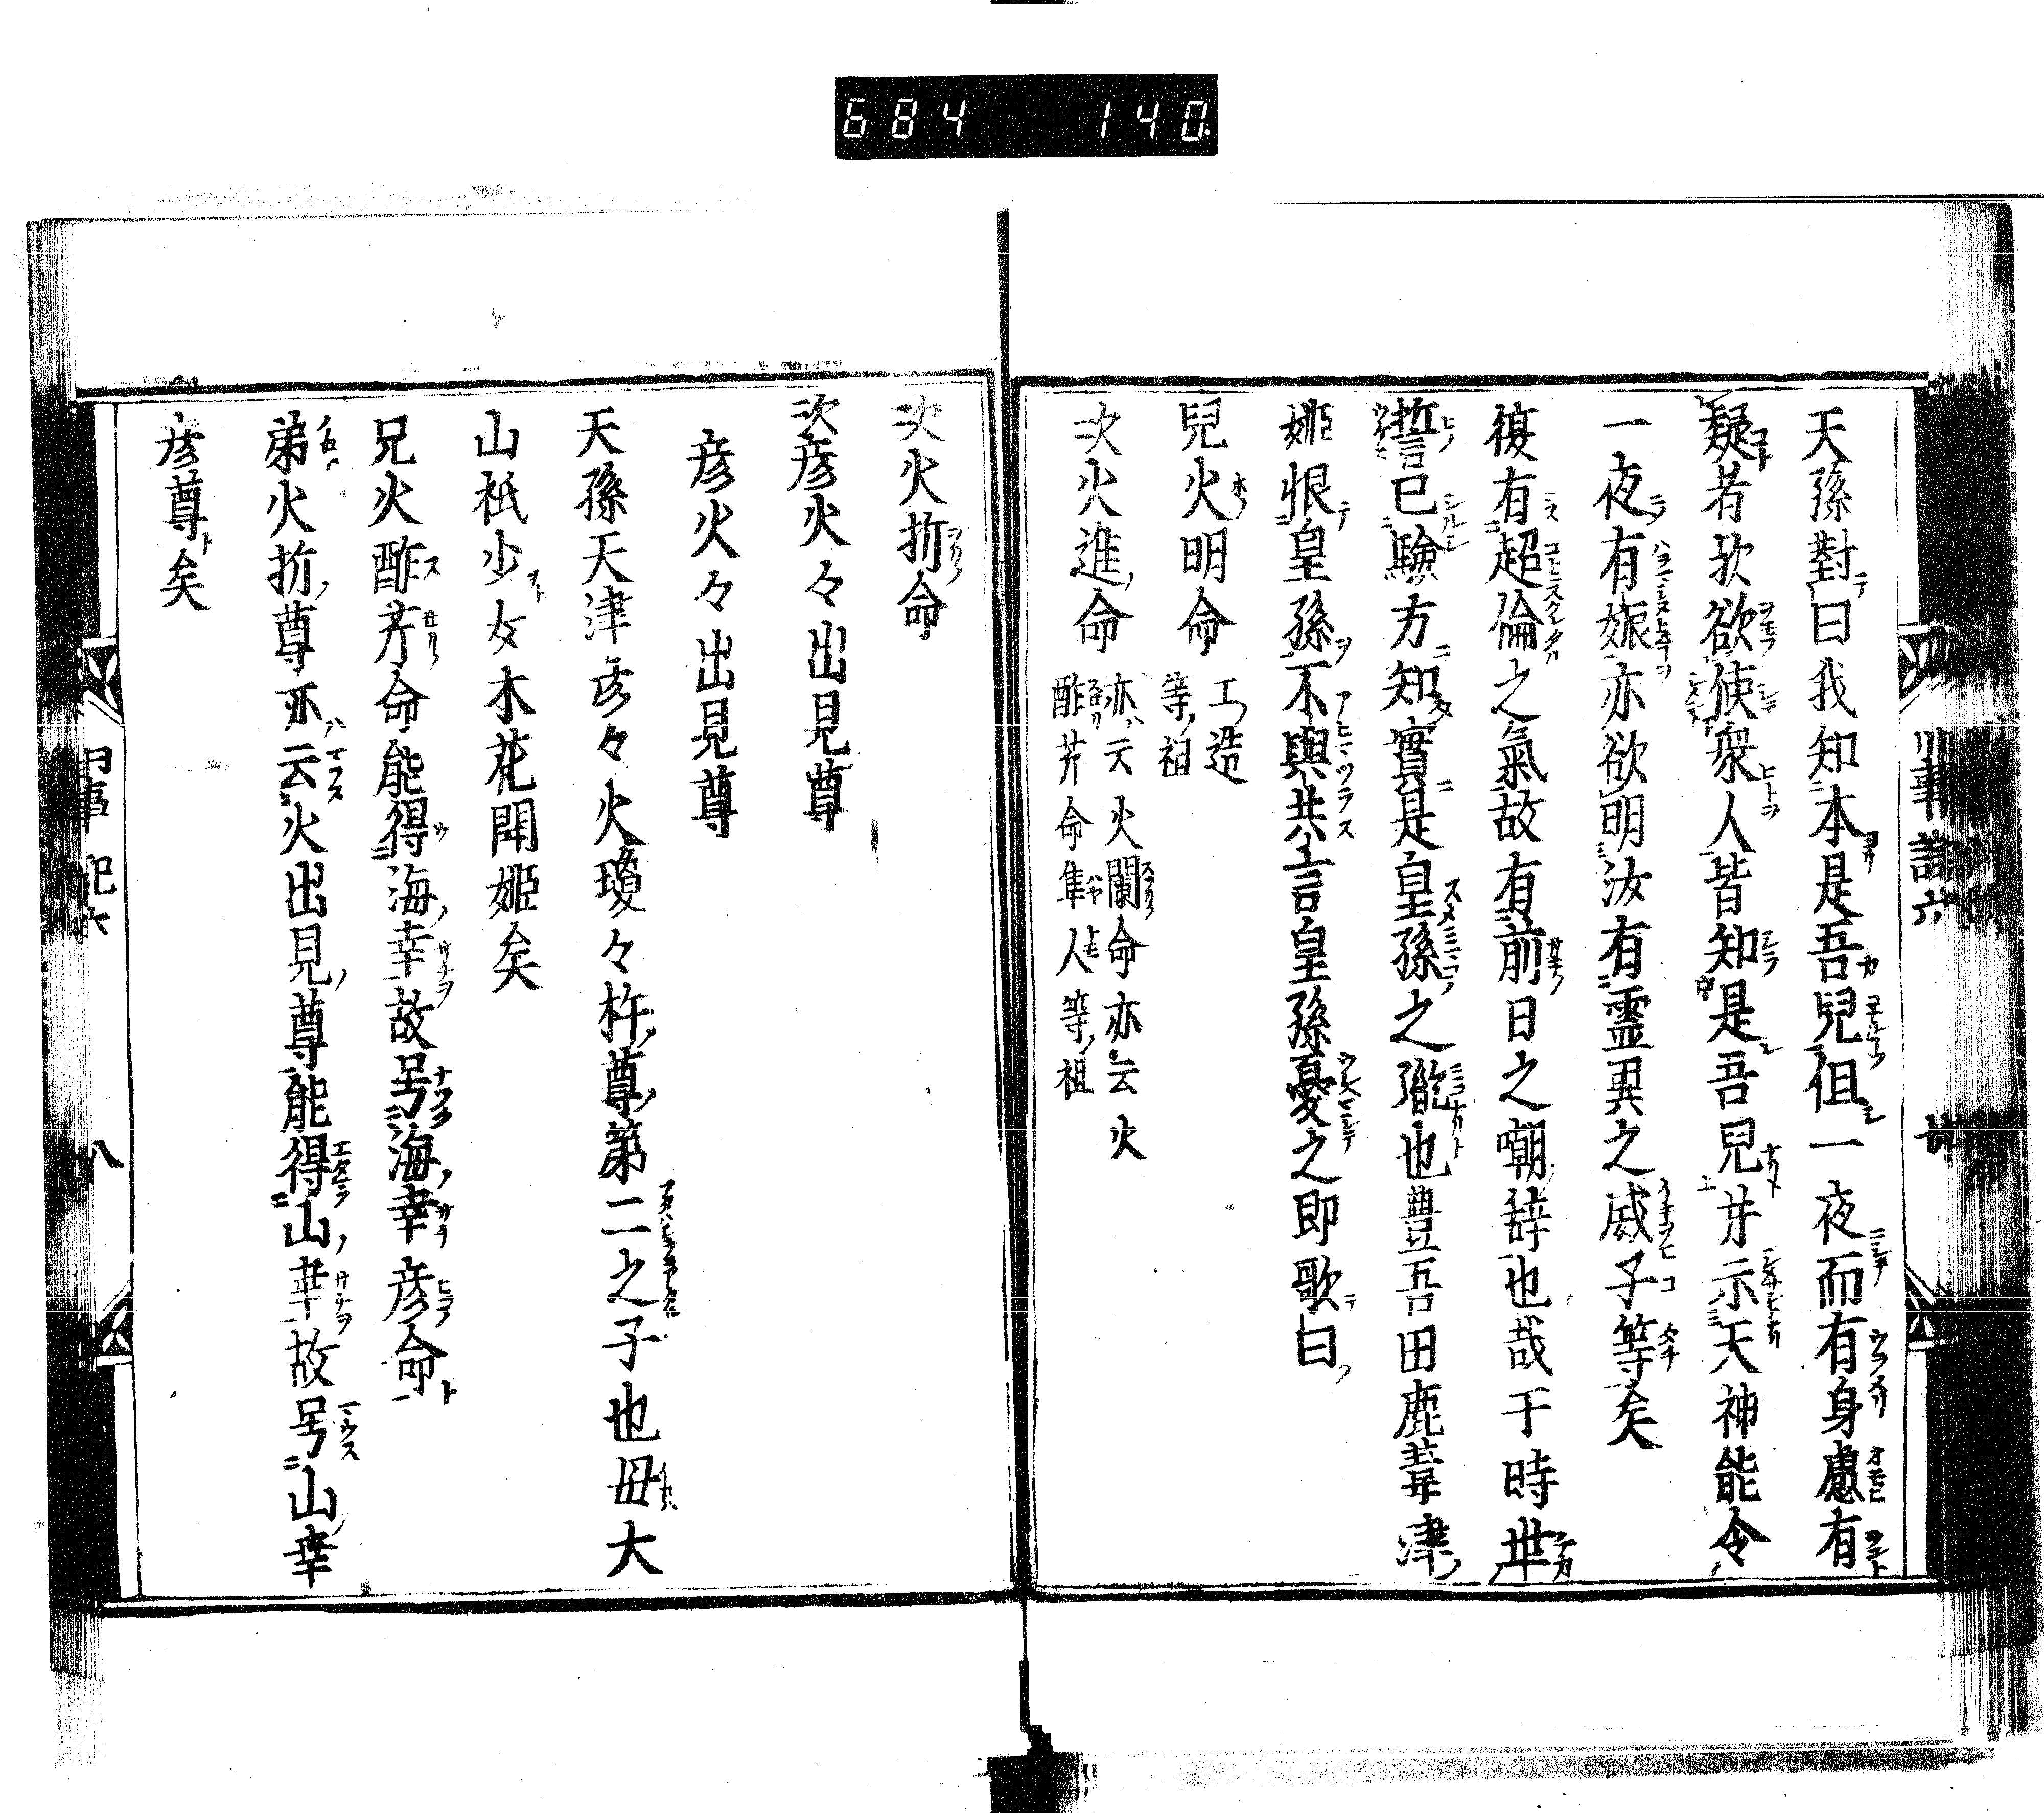 684 140
天孫對曰我知本是吾兒但一夜而有身慮有
疑者欲使衆人皆知是吾兒并示天神能令
一夜有娠亦欲明汝有霊異之威子等矣
復有超倫之氣故有前日之嘲辞也哉于時
誓已驗方知實是皇孫之也豊吾田鹿葦津
姫恨皇孫不與共言皇孫憂之即歌曰
兒火明命 工造等祖
次火進命 亦云火闌命亦云火酢芹命隼人等祖
次火折命
次彦火々出見尊
彦火々出見尊
天孫天津彦々火瓊々杵尊第二之子也毋大
山祇少女木花開姫矣
兄火酢芹命能得海幸故号海幸彦命
弟火折尊亦云火出見尊能得山幸故号山幸
彦尊矣
八